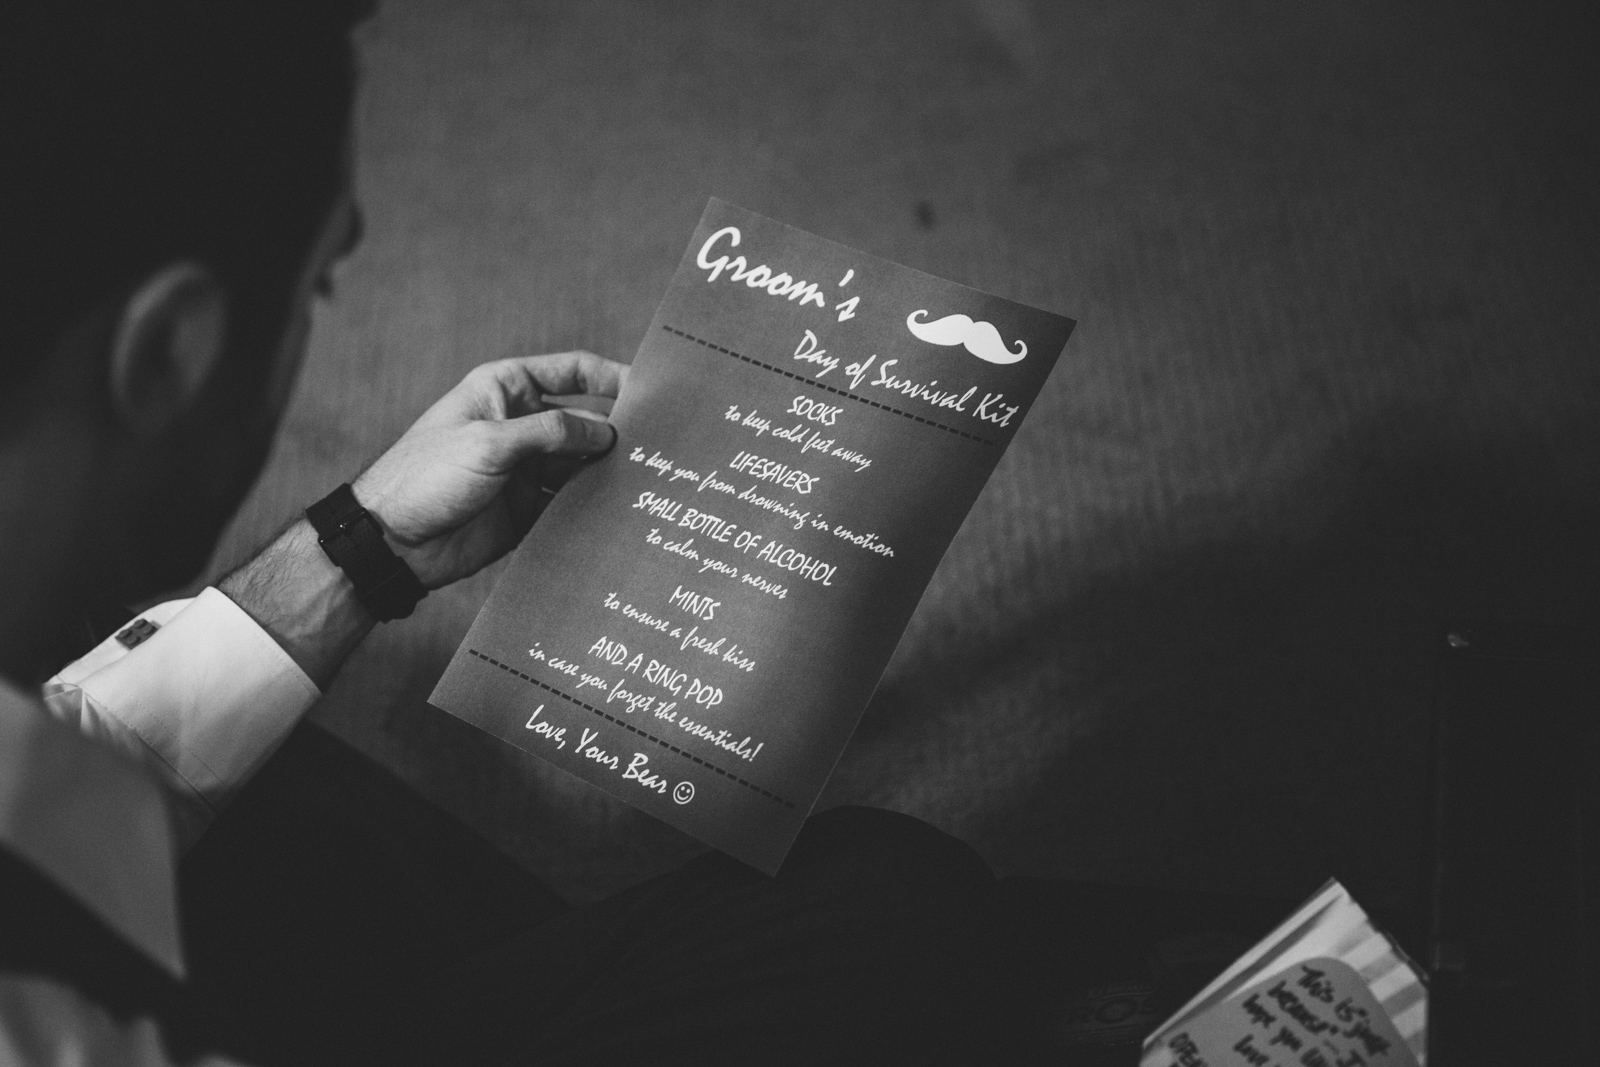 Groom's
Day of Survival Kit
SOCKS
to keep cold feet away
LIFESAVERS
to keep you from drowning in emotion
SMALL BOTTLE OF ALCOHOL
to calm your nerves
MINTS
to ensure a fresh kiss
AND A RING POP
in case you forget the essentials!
Love, Your Bear ☺
This is "just
because"... I
hope you
love